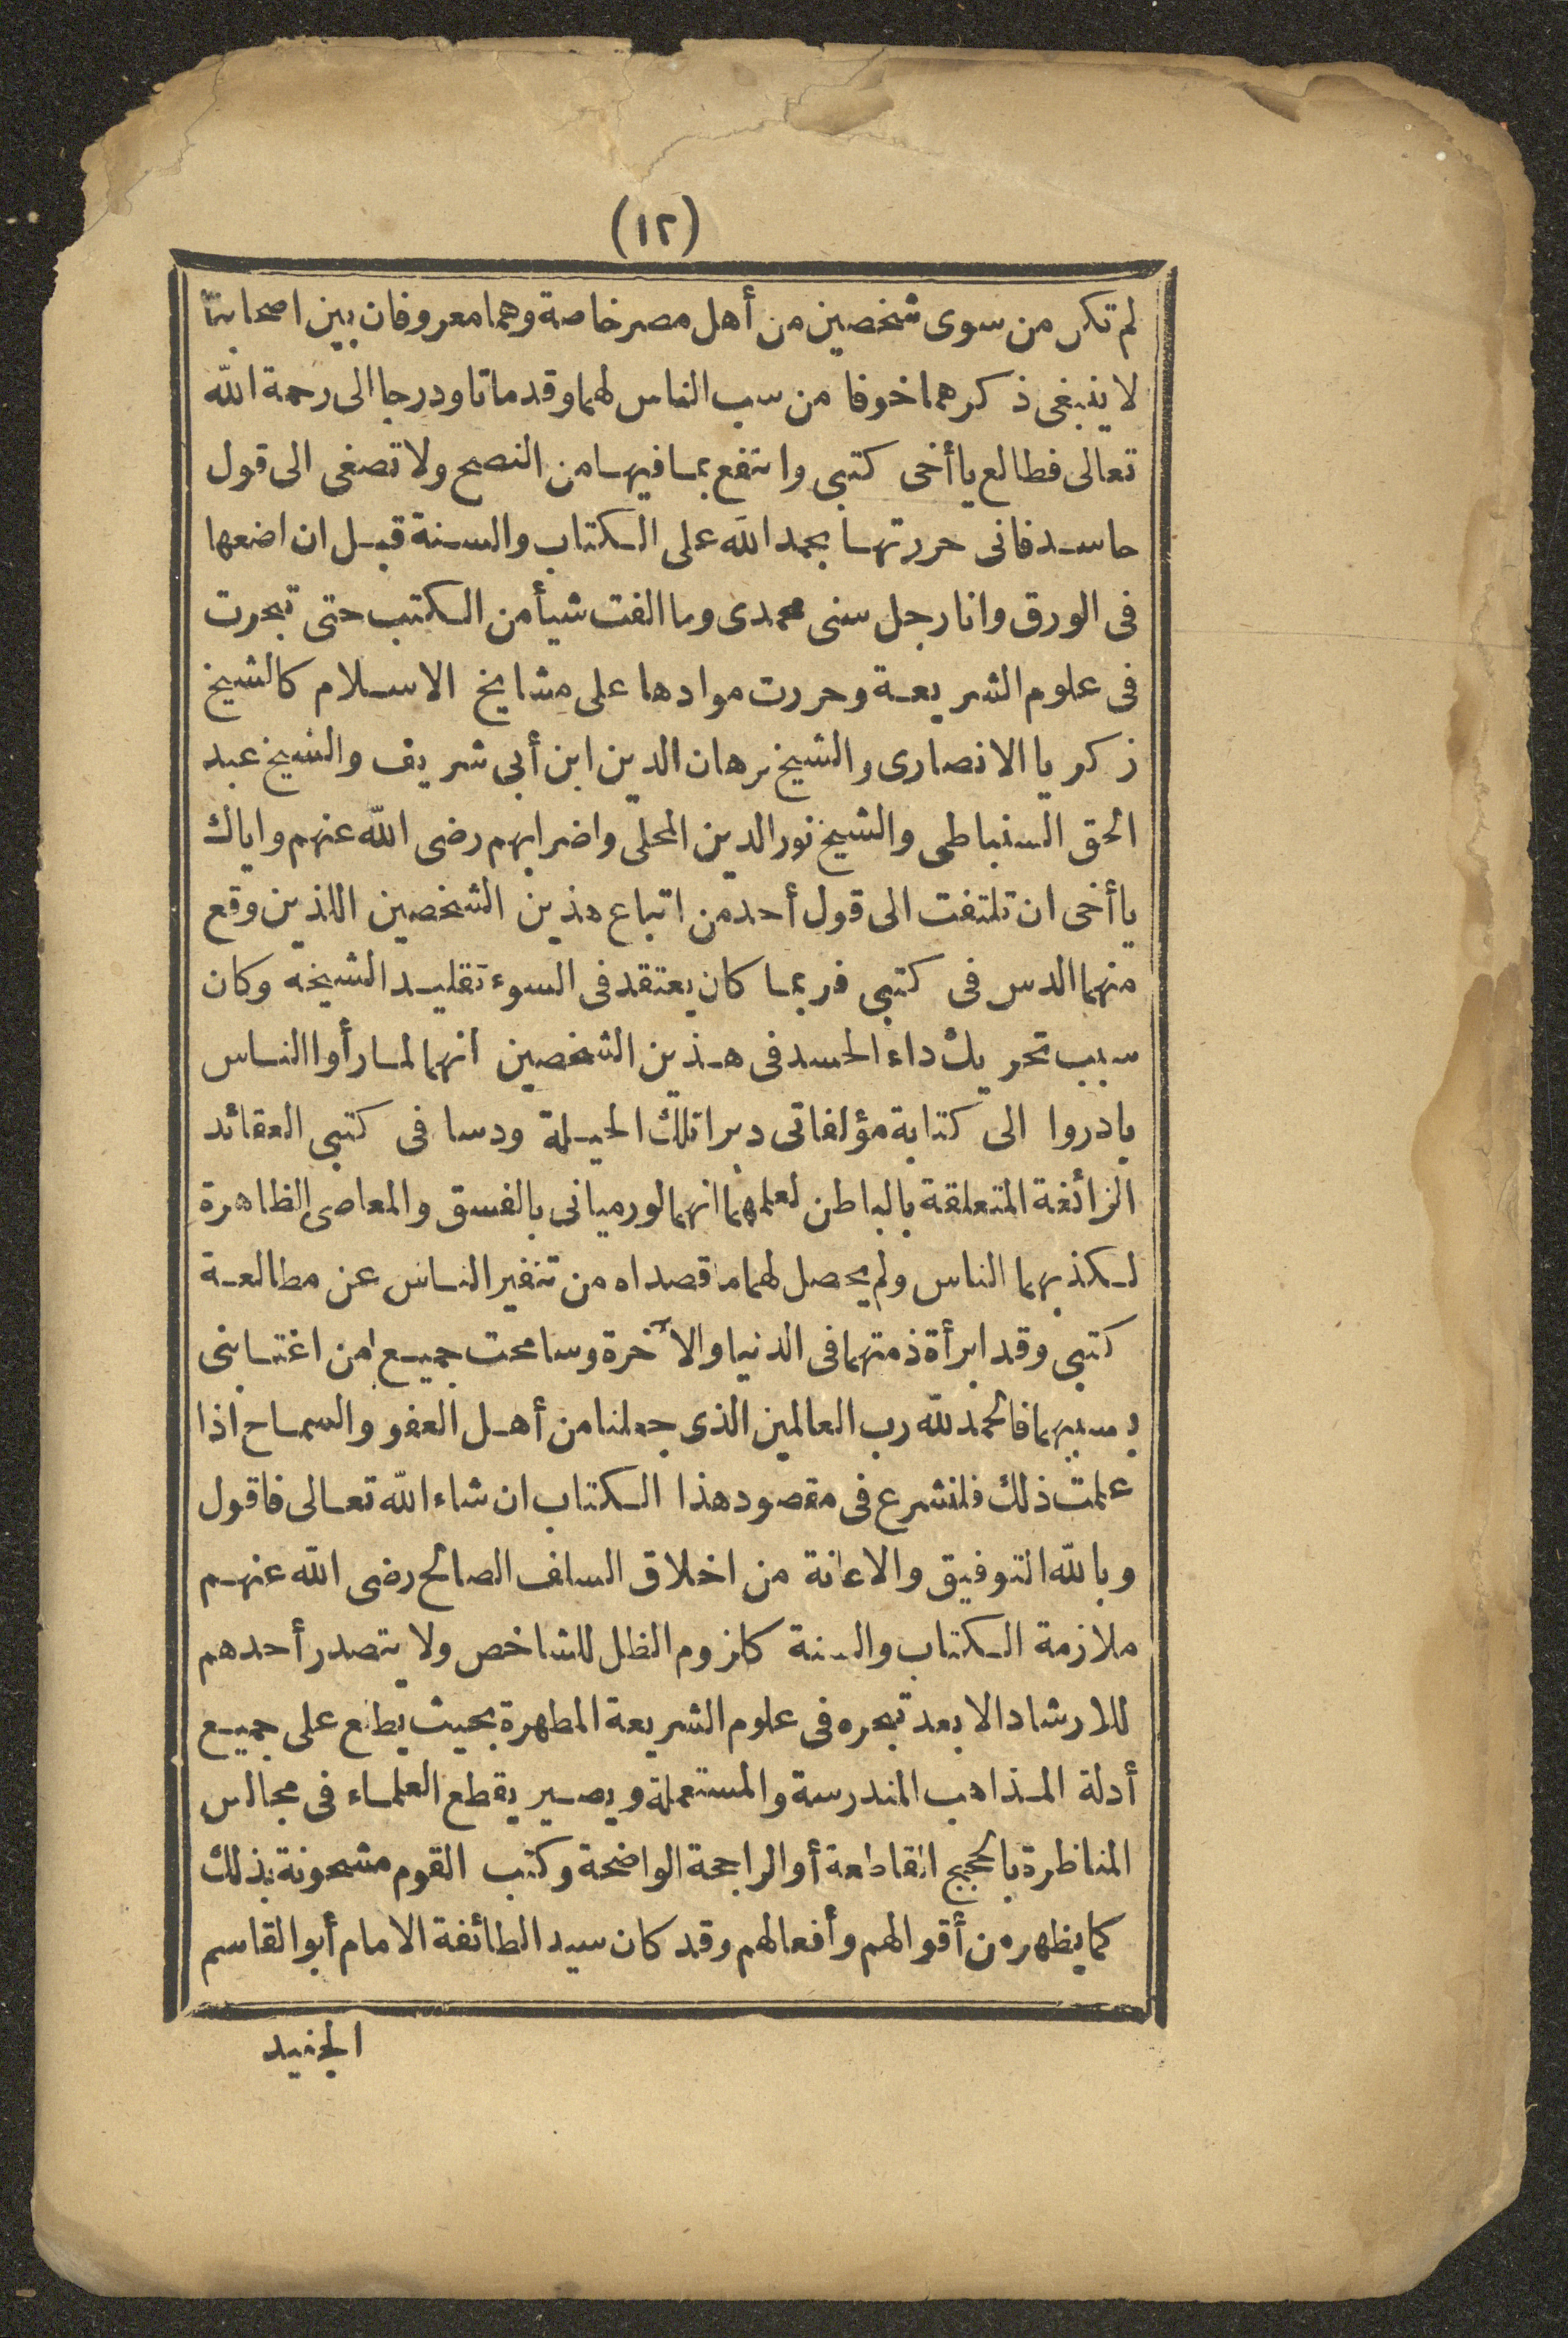 (١٢)
لم تكن من سوى شخصين من أهل مصر خاصة وهما معروفان بين اصحابنا
لا ينبغى ذكرهما خوفا من سب الناس لهما وقد ماتا ودرجا الى رحمة الله
تعالى فطالع يا أخى كتبى وانتفع بما فيها من النصح ولا تصغى الى قول
حاسد فانى حررتها بحمد الله على الكتاب والسنة قبل ان اضعها
فى الورق وانا رجل سنى محمدى وما الفت شيأ من الكتب حتى تبحرت
فى علوم الشريعة وحررت موادها على مشايخ الاسلام كالشيخ
زكريا الانصارى والشيخ برهان الدين ابن أبى شريف والشيخ عبد
الحق السنباطى والشيخ نور الدين المحلى واضرابهم رضى الله عنهم واياك
يا أخى ان تلتفت الى قول أحد من اتباع هذين الشخصين اللذين وقع
منهما الدس فى كتبى فربما كان يعتقد فى السوء تقليدا لشيخه وكان
سبب تحريك داء الحسد فى هذين الشخصين انهما لما رأوا الناس
بادروا الى كتابة مؤلفاتى دبرا تلك الحيلة ودسا فى كتبى العقائد
الزائغة المتعلقة بالباطن لعلمهما انهما لو رميانى بالفسق والمعاصى الظاهرة
لكذبهما الناس ولم يحصل لهما ما قصداه من تنفير الناس عن مطالعة
كتبى وقد ابرأة ذمتهما فى الدنيا والآخرة وسامحت جميع من اغتابنى
بسببهما فالحمد لله رب العالمين الذى جعلنا من أهل العفو والسماح اذا
علمت ذلك فلنشرع فى مقصود هذا الكتاب ان شاء الله تعالى فاقول
وبالله التوفيق والاعانة من اخلاق السلف الصالح رضى الله عنهم
ملازمة الكتاب والسنة كلزوم الظل للشاخص ولا يتصدر أحدهم
للارشاد الا بعد تبحره فى علوم الشريعة المطهرة بحيث يطلع على جميع
أدلة المذاهب المندرسة والمستعملة ويصير يقطع العلماء فى مجالس
المناظرة بالحجج القاطعة أو الراجحة الواضحة وكتب القوم مشحونة بذلك
كما يظهر من أقوالهم وأفعالهم وقد كان سيد الطائفة الامام أبو القاسم
الجنيد